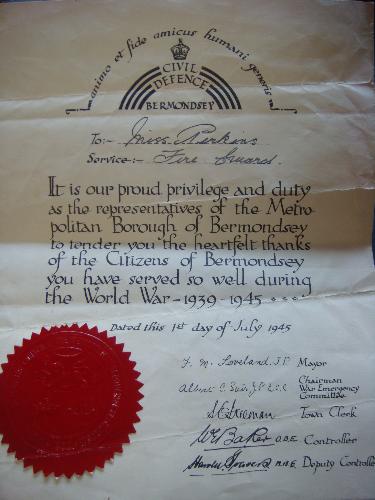 animo et fide amicus humani generis
CIVIL
DEFENCE
BERMONDSEY
To:- Miss Perkins
Service:- Fire Guard.
It is our proud privilege and duty
as the representatives of the Metro-
politan Borough of Bermondsey
to tender you the heartfelt thanks
of the Citizens of Bermondsey
you have served so well during
the World War - 1939 - 1945
Dated this 1st day of July 1945
F. M. Loveland J.P. Mayor
Albert J.P. L.C.C. Chairman
War Emergency
Committee
Town Clerk
Baker O.B.E. Controller
Harold M.B.E. Deputy Controller